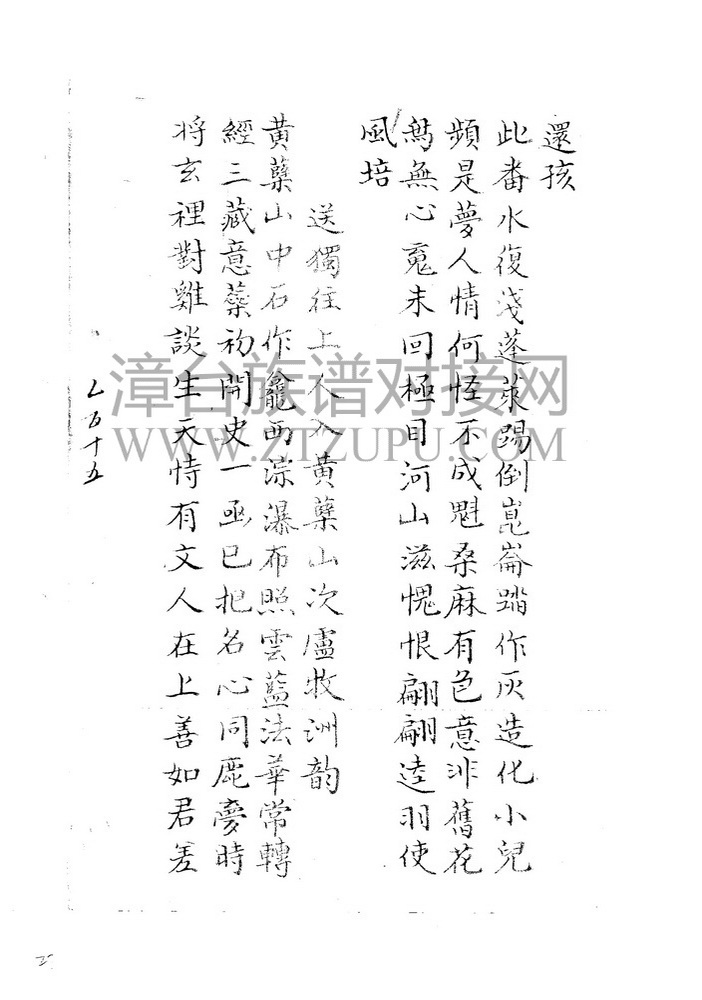 還孩
此番水復淺蓬萊踢倒崑崙踏作灰造化小兒
頻是夢人情何怪不成魁桑麻有色意非舊花
鳥無心冤未回極目河山滋愧恨翩翩逵羽使
風培
送獨往上人入黃蘗山次盧牧洲韵
黃蘗山中石作龕西淙瀑布照雲藍法華常轉
經三藏意蘂初開史一函已把名心同鹿夢時
将玄裡對雞談生天恃有文人在上善如君差
乙百十五
漳台族谱对接网
WWW.ZTZUPU.COM